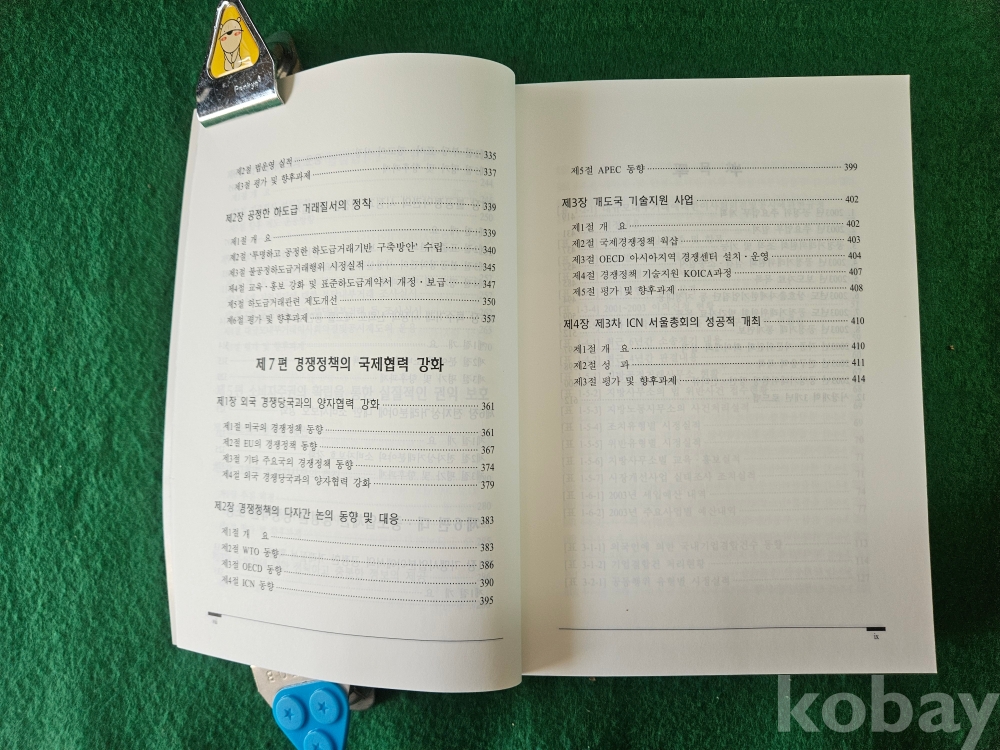 제2절 법운영 실적 335
제3절 평가 및 향후과제 337
제2장 공정한 하도급 거래질서의 정착 339
제1절 개 요 339
제2절 '투명하고 공정한 하도급거래기반 구축방안' 수립 340
제3절 불공정하도급거래행위 시정실적 345
제4절 교육·홍보 강화 및 표준하도급계약서 개정·보급 347
제5절 하도급거래관련 제도개선 350
제6절 평가 및 향후과제 357
제7편 경쟁정책의 국제협력 강화
제1장 외국 경쟁당국과의 양자협력 강화 361
제1절 미국의 경쟁정책 동향 361
제2절 EU의 경쟁정책 동향 367
제3절 기타 주요국의 경쟁정책 동향 374
제4절 외국 경쟁당국과의 양자협력 강화 379
제2장 경쟁정책의 다자간 논의 동향 및 대응 383
제1절 개 요 383
제2절 WTO 동향 386
제3절 OECD 동향 390
제4절 ICN 동향 395
viii
제5절 APEC 동향 399
제3장 개도국 기술지원 사업 402
제1절 개 요 402
제2절 국제경쟁정책 워샵 403
제3절 OECD 아시아지역 경쟁센터 설치·운영 404
제4절 경쟁정책 기술지원 KOICA과정 407
제5절 평가 및 향후과제 408
제4장 제3차 ICN 서울총회의 성공적 개최 410
제1절 개 요 410
제2절 성 과 411
제3절 평가 및 향후과제 414
ix
kobay